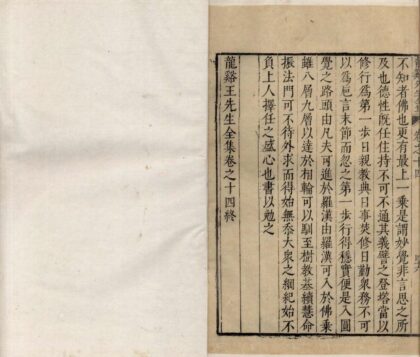 不知者佛也更有最上一乘是謂妙覺非言思之所
及也德性既任住持不可不通其義譬之登塔當以
修行為第一步日親教典日事焚修日勤衆務不可
以為巵言末節而忽之第一步行得穩實便是入圓
覺之路頭由凡夫可進於羅漢由羅漢可入於佛乘
雖八層九層以達於相輪可以馴至樹教基續慧命
振法門可不待外求而得始無忝大衆之綱紀始不
負上人擇任之盛心也書以勉之
龍谿王先生全集卷之十四終